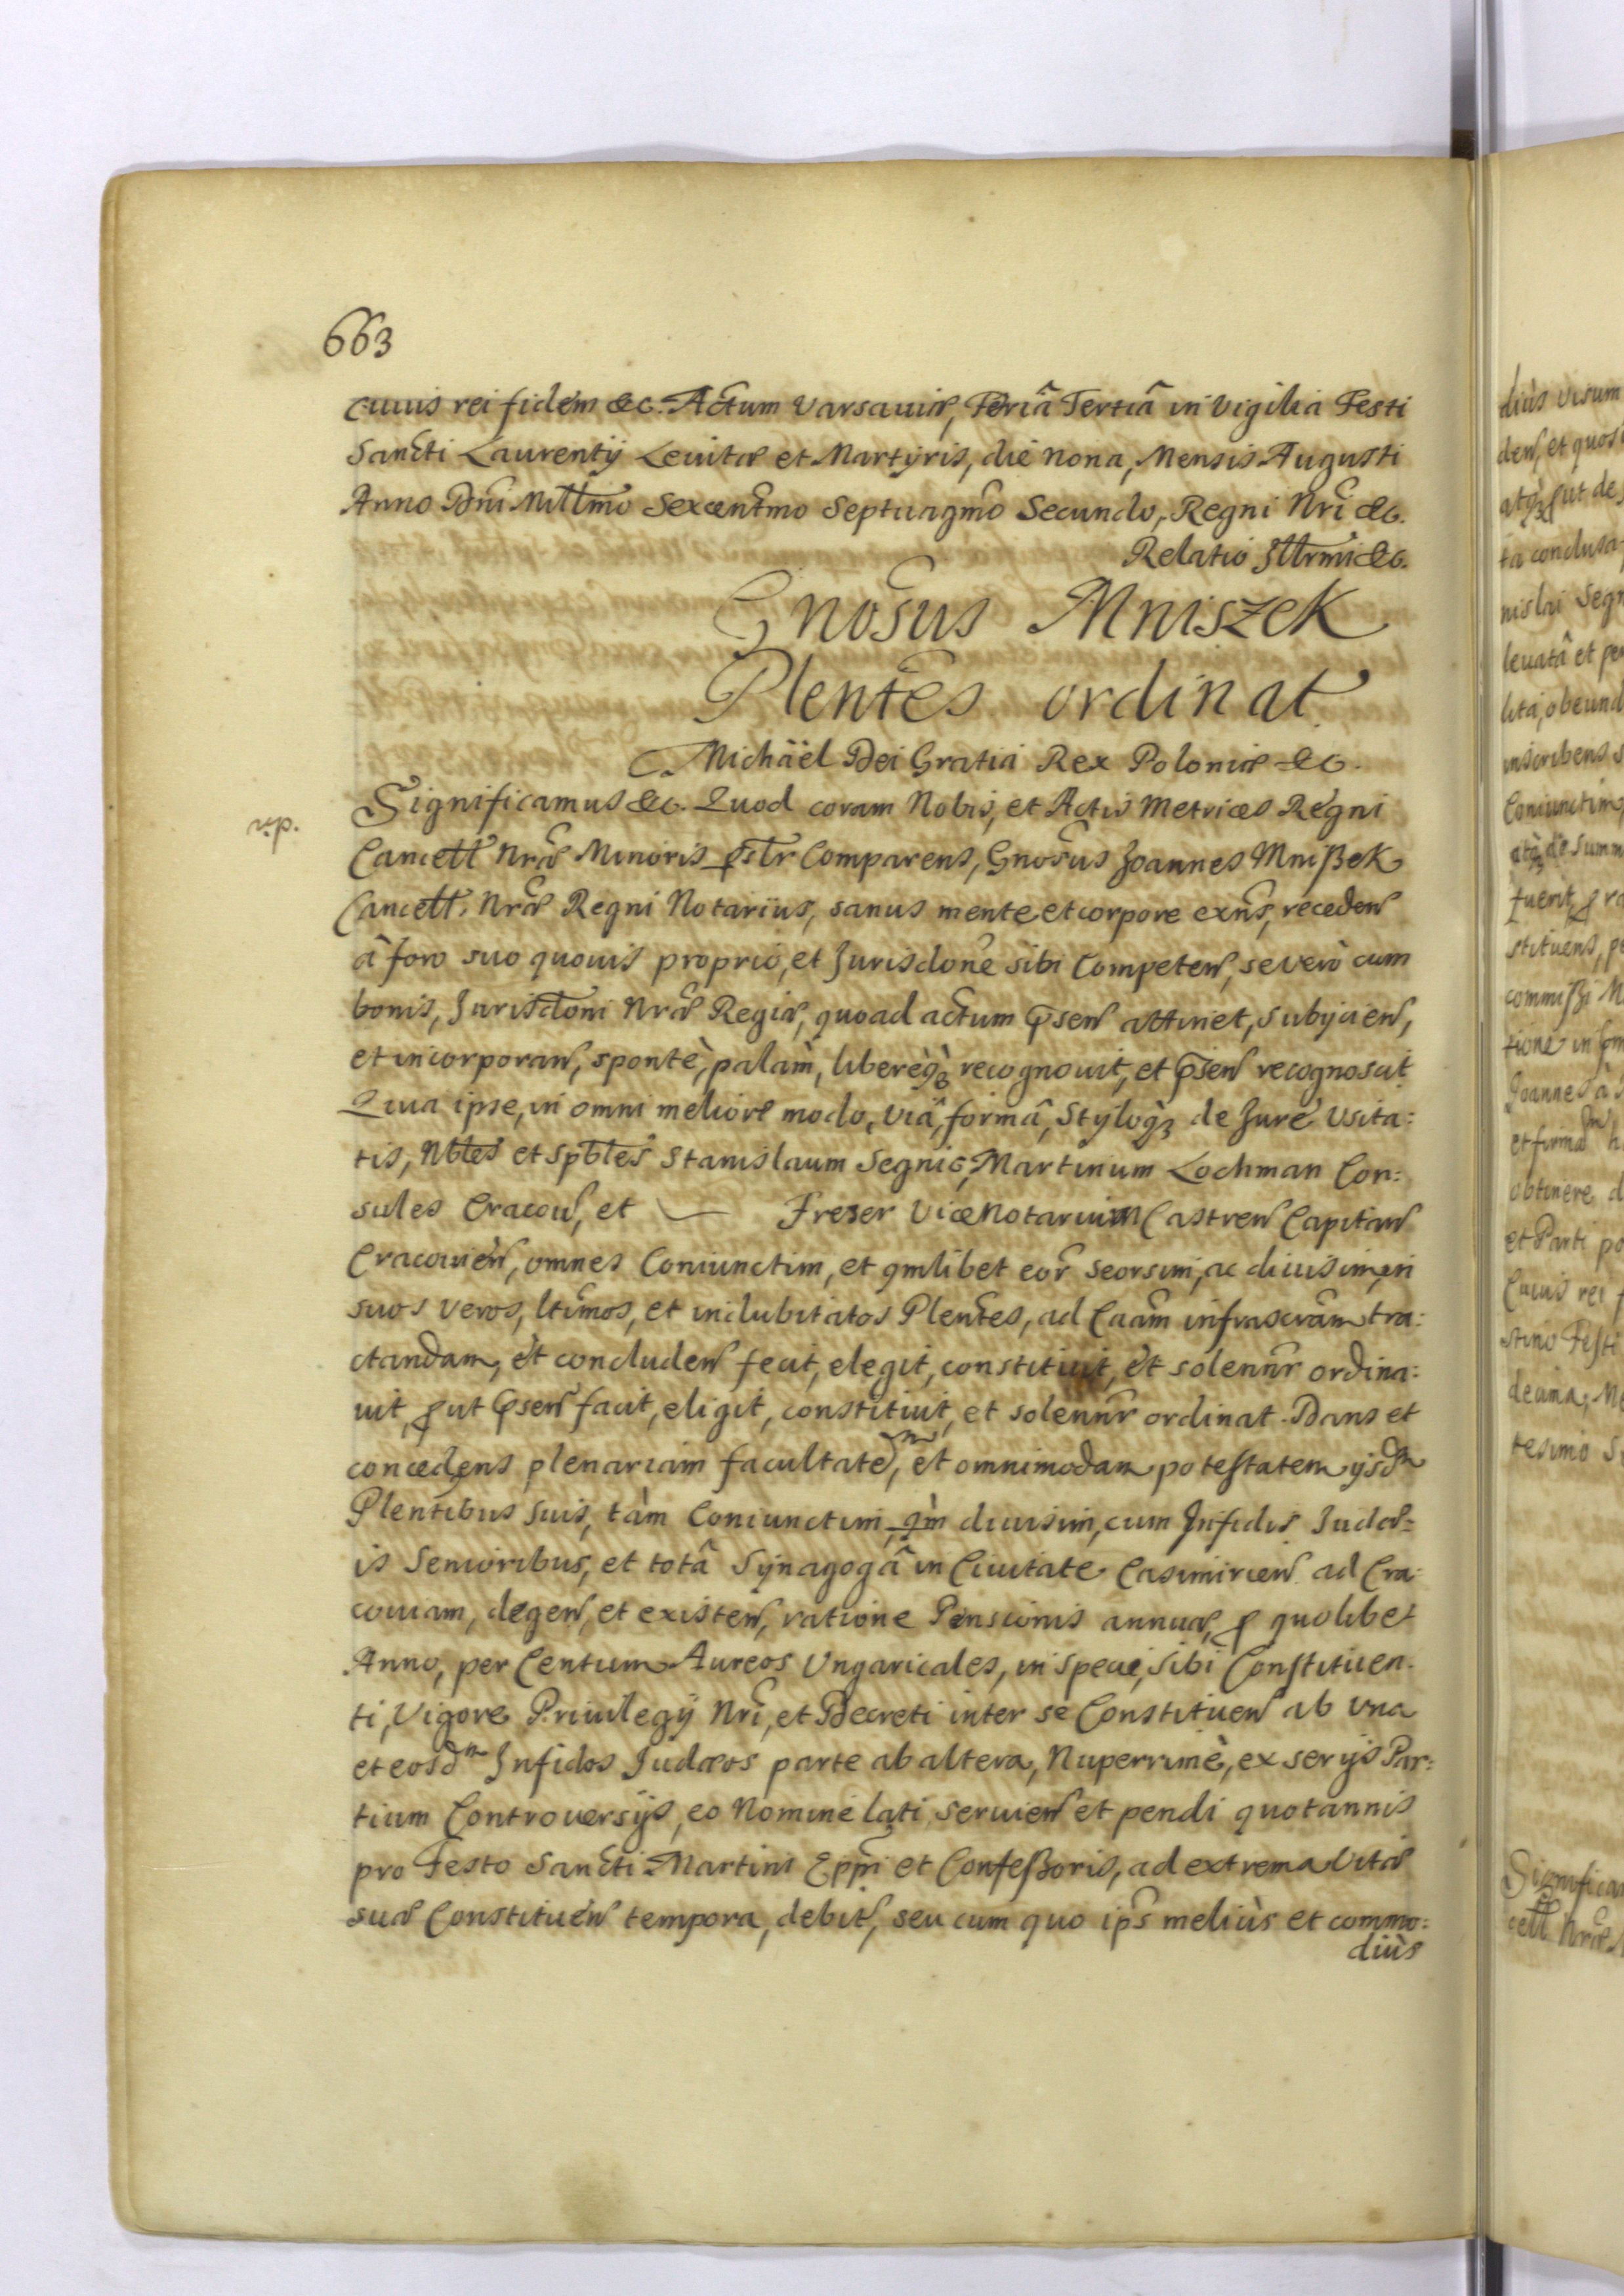 663
cuius rei fidem &c. Actum Varsauiæ, Feriâ Tertiâ in Vigilia Festi
Sancti Laurentij Leuitæ et Martyris, die nona, Mensis Augusti
Anno Dni Millmo Sexcentmo Septuagmo Secundo, Regni Nri &c.
Relatio Illrmi &c.
Gnosus Mniszek
Plentes ordinat
Michäel Dei Gratia Rex Poloniæ &c.
Significamus &c. Quod coram Nobis, et Actis Metrices Regni
Cancell Nræ Minoris pstr Comparens, Gnosus Joannes Mnißek
Cancell. Nræ Regni Notarius, sanus mente et corpore exns, receden
à foro suo quouis proprio, et Jurisdone sibi Competen, se verò cum
bonis, Jurisdtoni Nræ Regiæ, quoad actum psen attinet, subijcien,
et incorporan, spontè, palàm, liberèq; recognouit, et psen recognoscit
Quia ipse, in omni meliori modo, viâ, formâ, styloq; de Jure usita:
tis, Nbles et Spbles Stanislaum Segnic, Martinum Lochman Con:
sules Cracou, et Frezer Vicenotarium Castren Capitan
Cracouien, omnes Coniunctim, et qmlibet eor seorsim, ac diuisim, in
suos veros, ltimos, et indubitatos Plentes, ad Caam infrascram tra:
ctandam, et concluden fecit, elegit, constituit, et solennr ordina:
uit, put psen facit, eligit, constituit, et solennr ordinat. Dans et
concedens plenariam facultatem, et omnimodam potestatem ijsdm
Plentibus suis, tàm Coniunctim, qm diuisim, cum Infidis Judæ:
is Senioribus, et totâ Synagogâ in Ciuitate Casimirien ad Cra:
couiam, degen, et existen, ratione Pensionis annuæ, p quolibet
Anno, per Centum Aureos Ungaricales, in specie, sibi Constituen:
ti, Vigore Priuilegij Nri, et Decreti inter se Constituen ab una
et eosdm Infidos Judæos parte ab altera, Nuperrimè, ex serijs Par:
tium Controuersijs, eo Nomine lati seruien et pendi quotannis
pro Festo Sancti Martini Eppi et Confeßoris, ad extrema Vitæ
suæ Constituen tempora, debit, seu cum quo ips meliùs et commo:
diùs